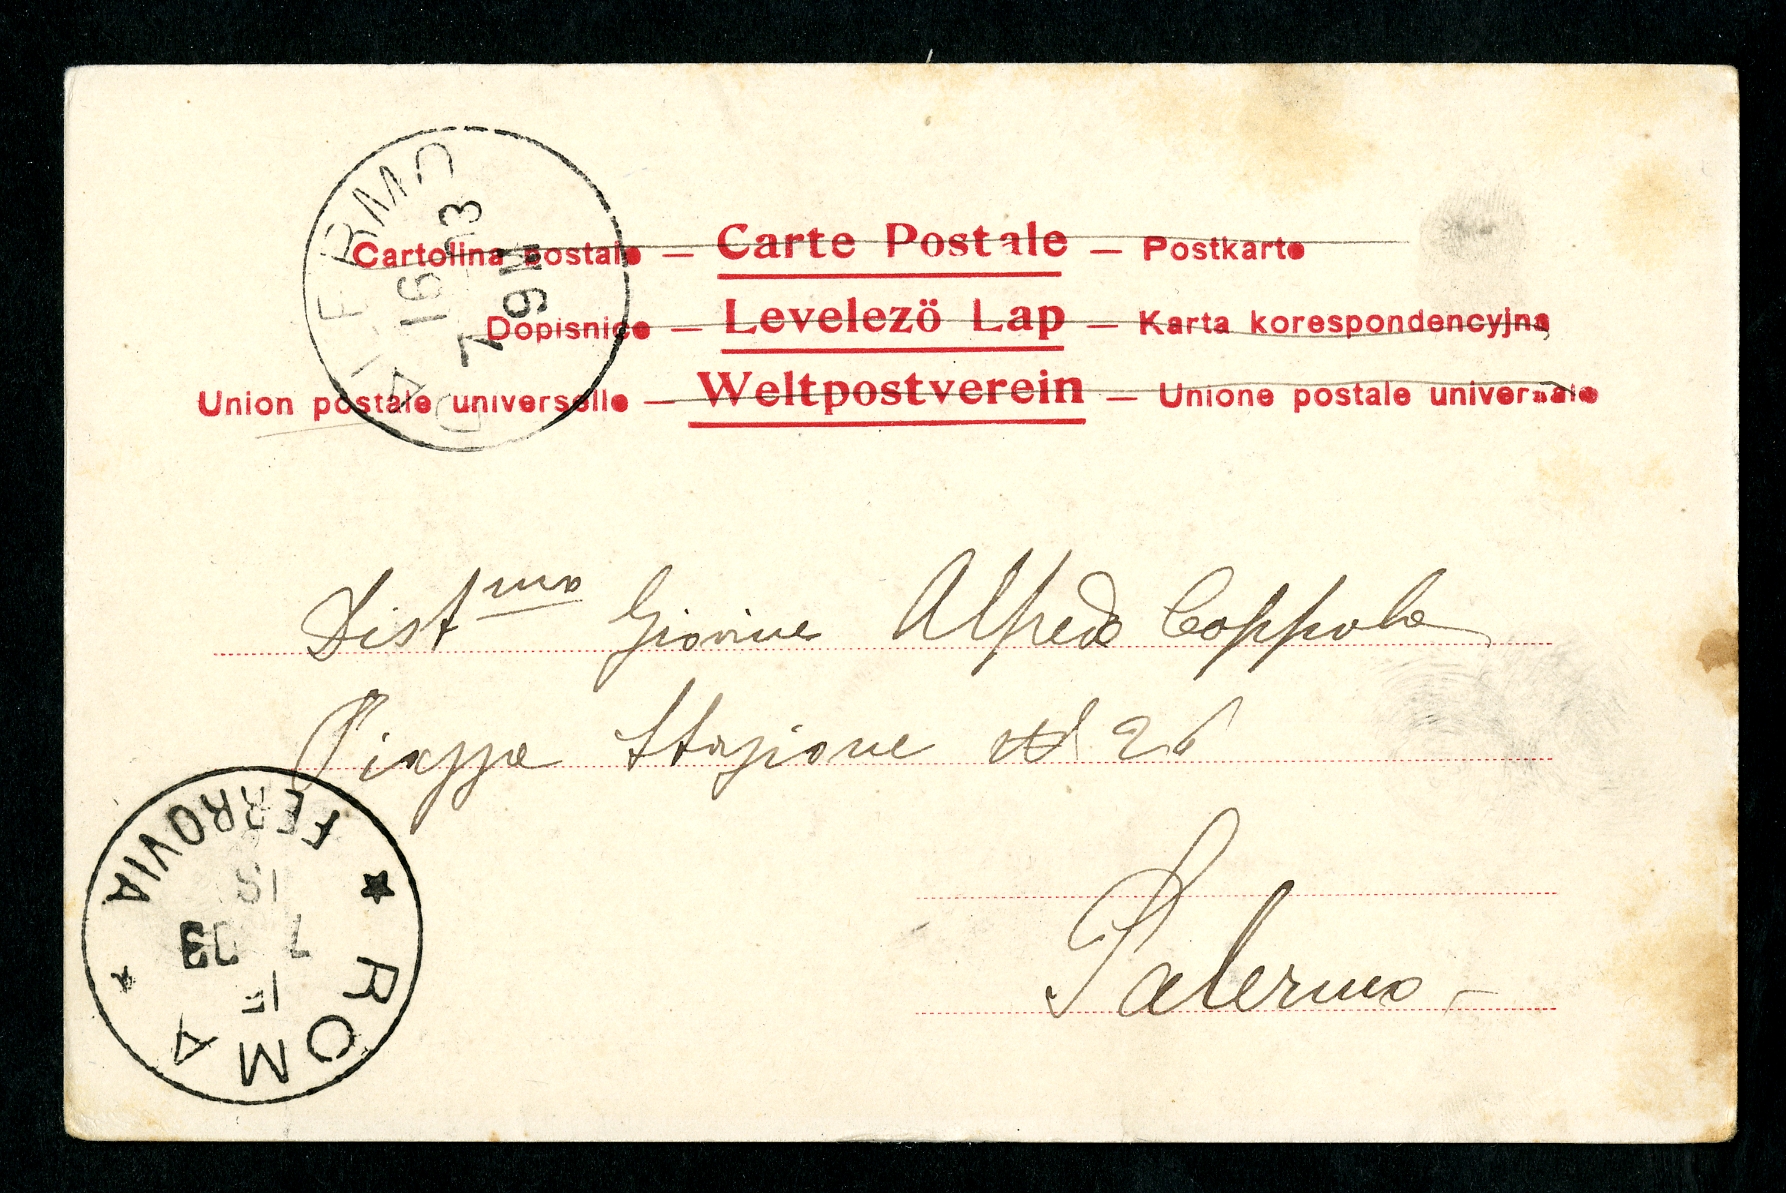 Cartolina postale — Carte Postale — Postkarte
Dopisnice — Levelezö Lap — Karta korespondencyjna
Union postale universelle — Weltpostverein — Unione postale universale
16 7 03
9 M
Dist.mo Giovine Alfredo Coppola
Piazza Stazione N 26
Palermo
FERROVIA
7 03
ROMA